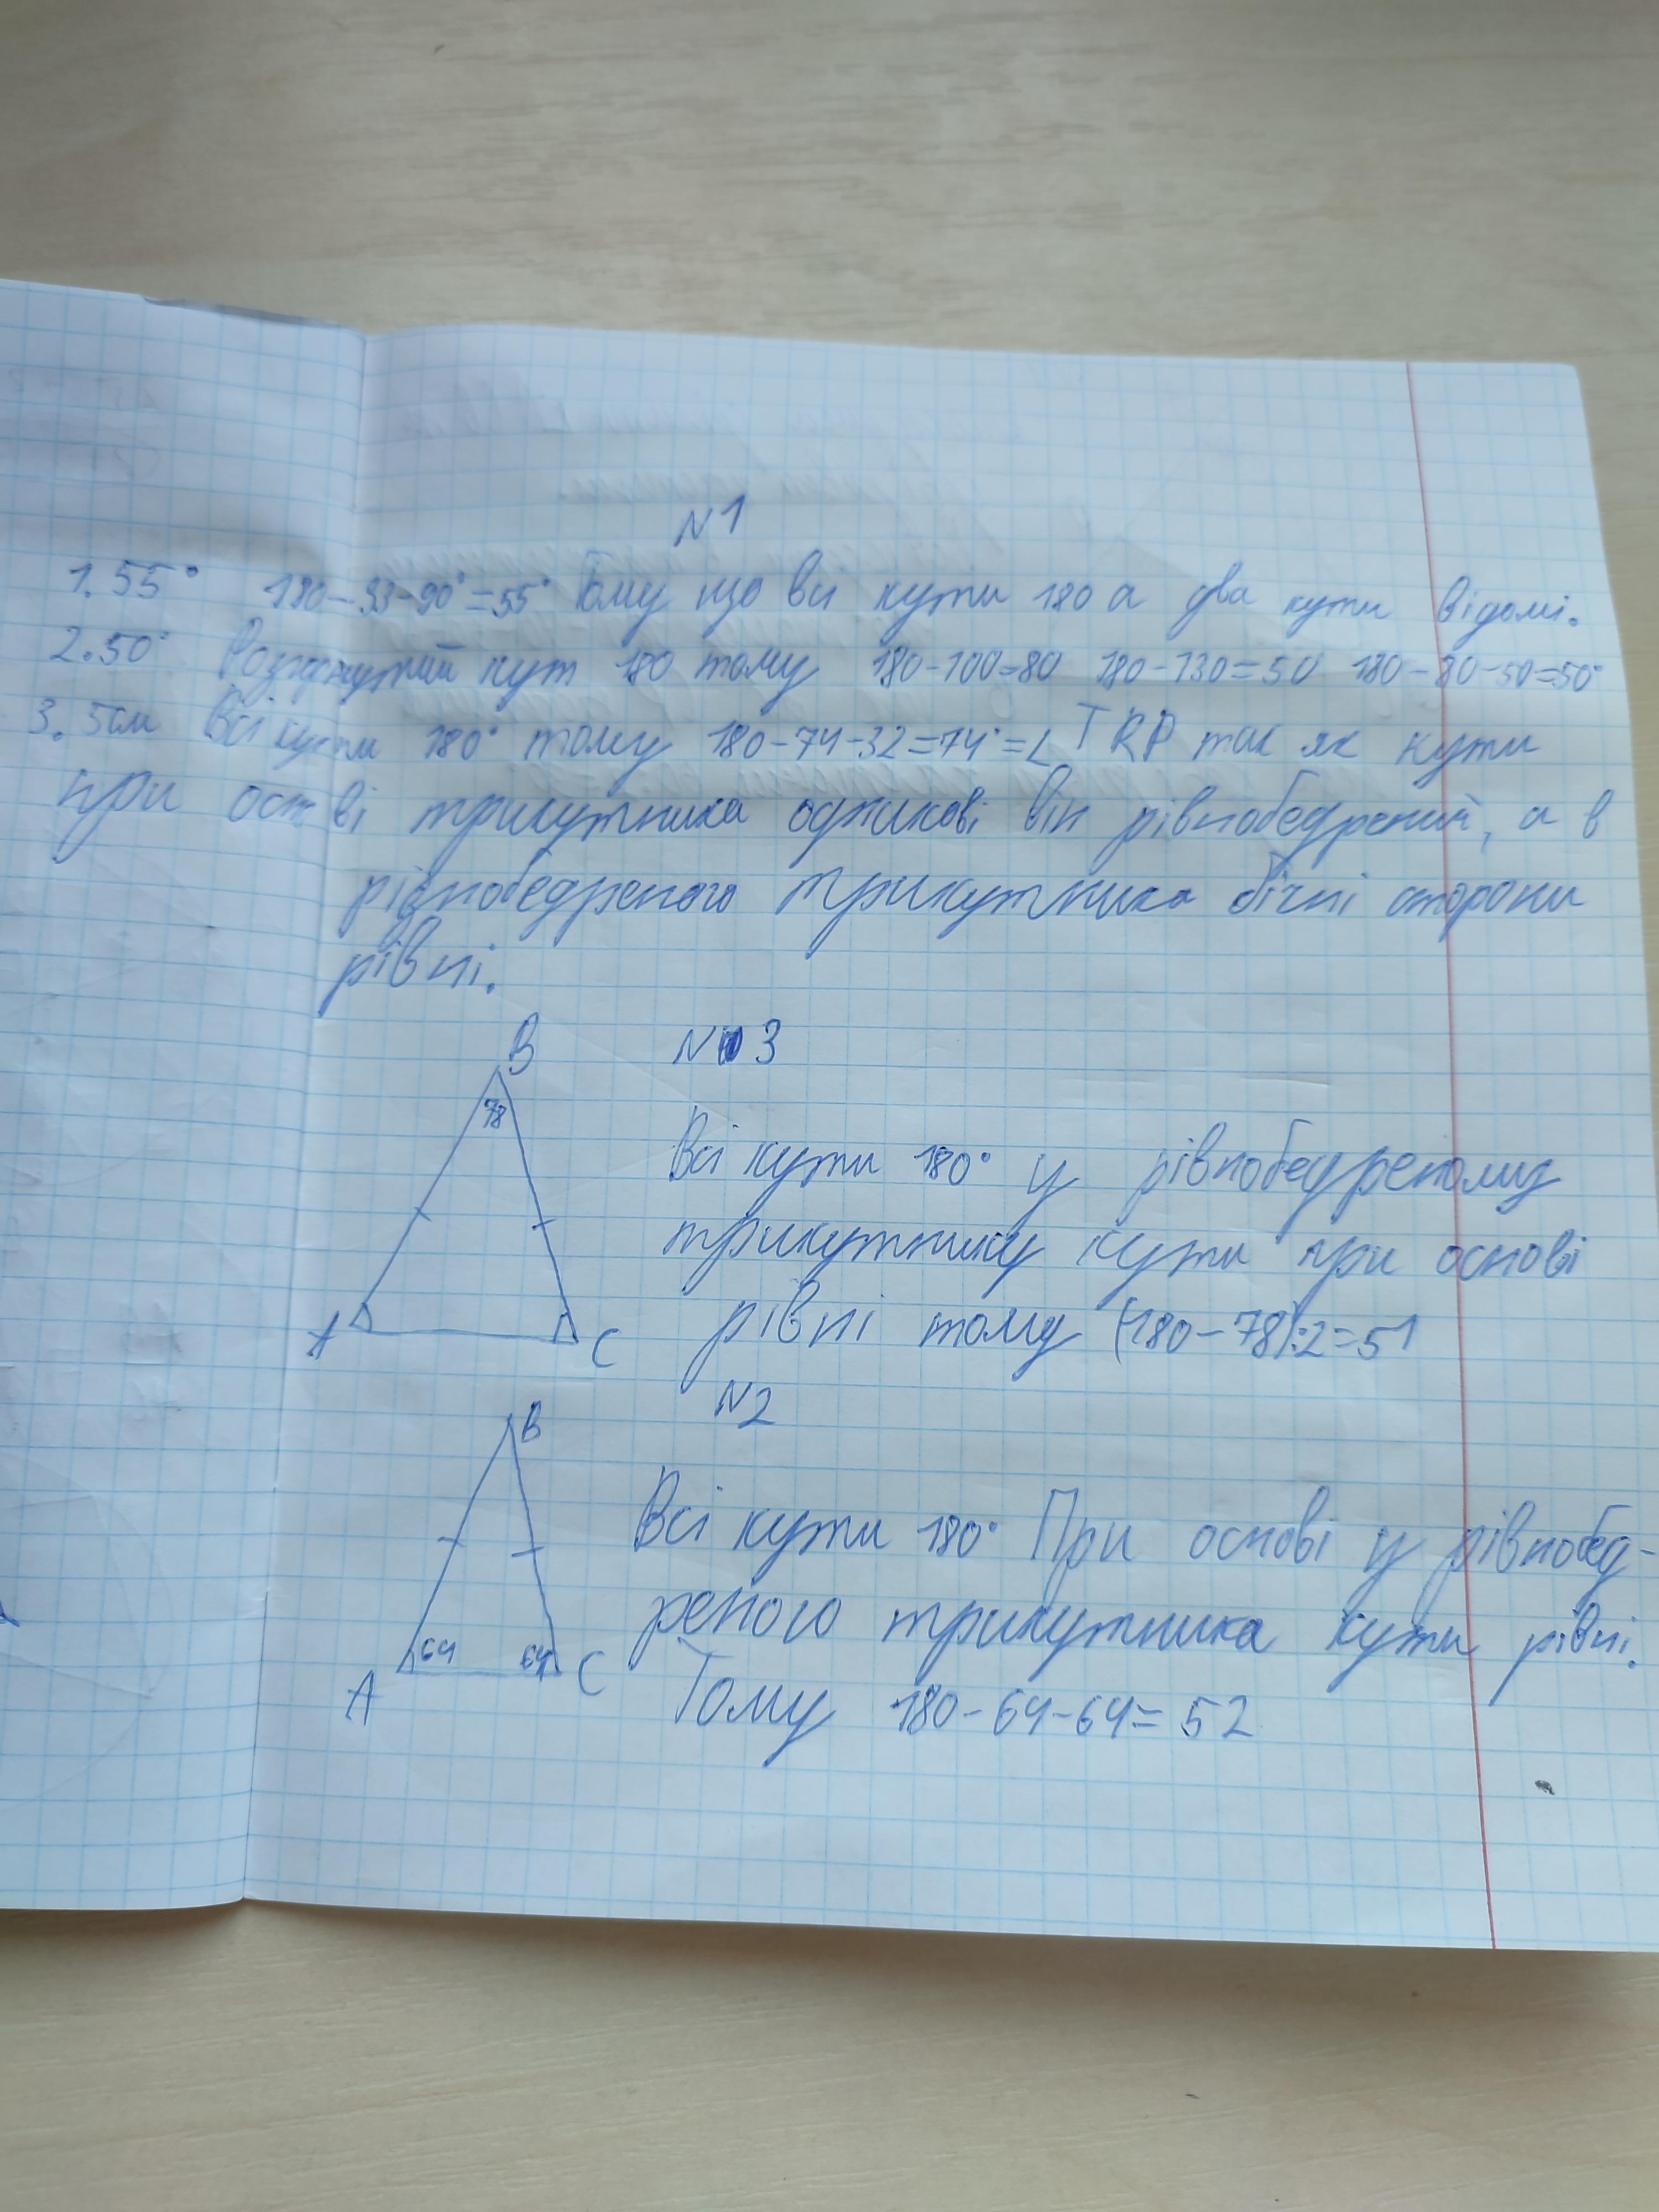 N1
1. 55° 180-33-90°=55° Тому що всі кути 180 а два кути відомі.
2. 50° Розгорнутий кут 180 тому 180-100=80 180-130=50 180-80-50=50°
3. 5см Всі кути 180° тому 180-74-32=74°=∠TRP так як кути
при оснві трикутника однакові він рівнобедрений, а в
рівнобедреного трикутника бічні сторони
рівні.
N 3
B
78
A
C
Всі кути 180° у рівнобедреному
трикутнику кути при основі
рівні тому (180-78):2=51
N2
B
64
64
A
C
Всі кути 180° При основі у рівнобед-
реного трикутника кути рівні.
Тому 180-64-64=52